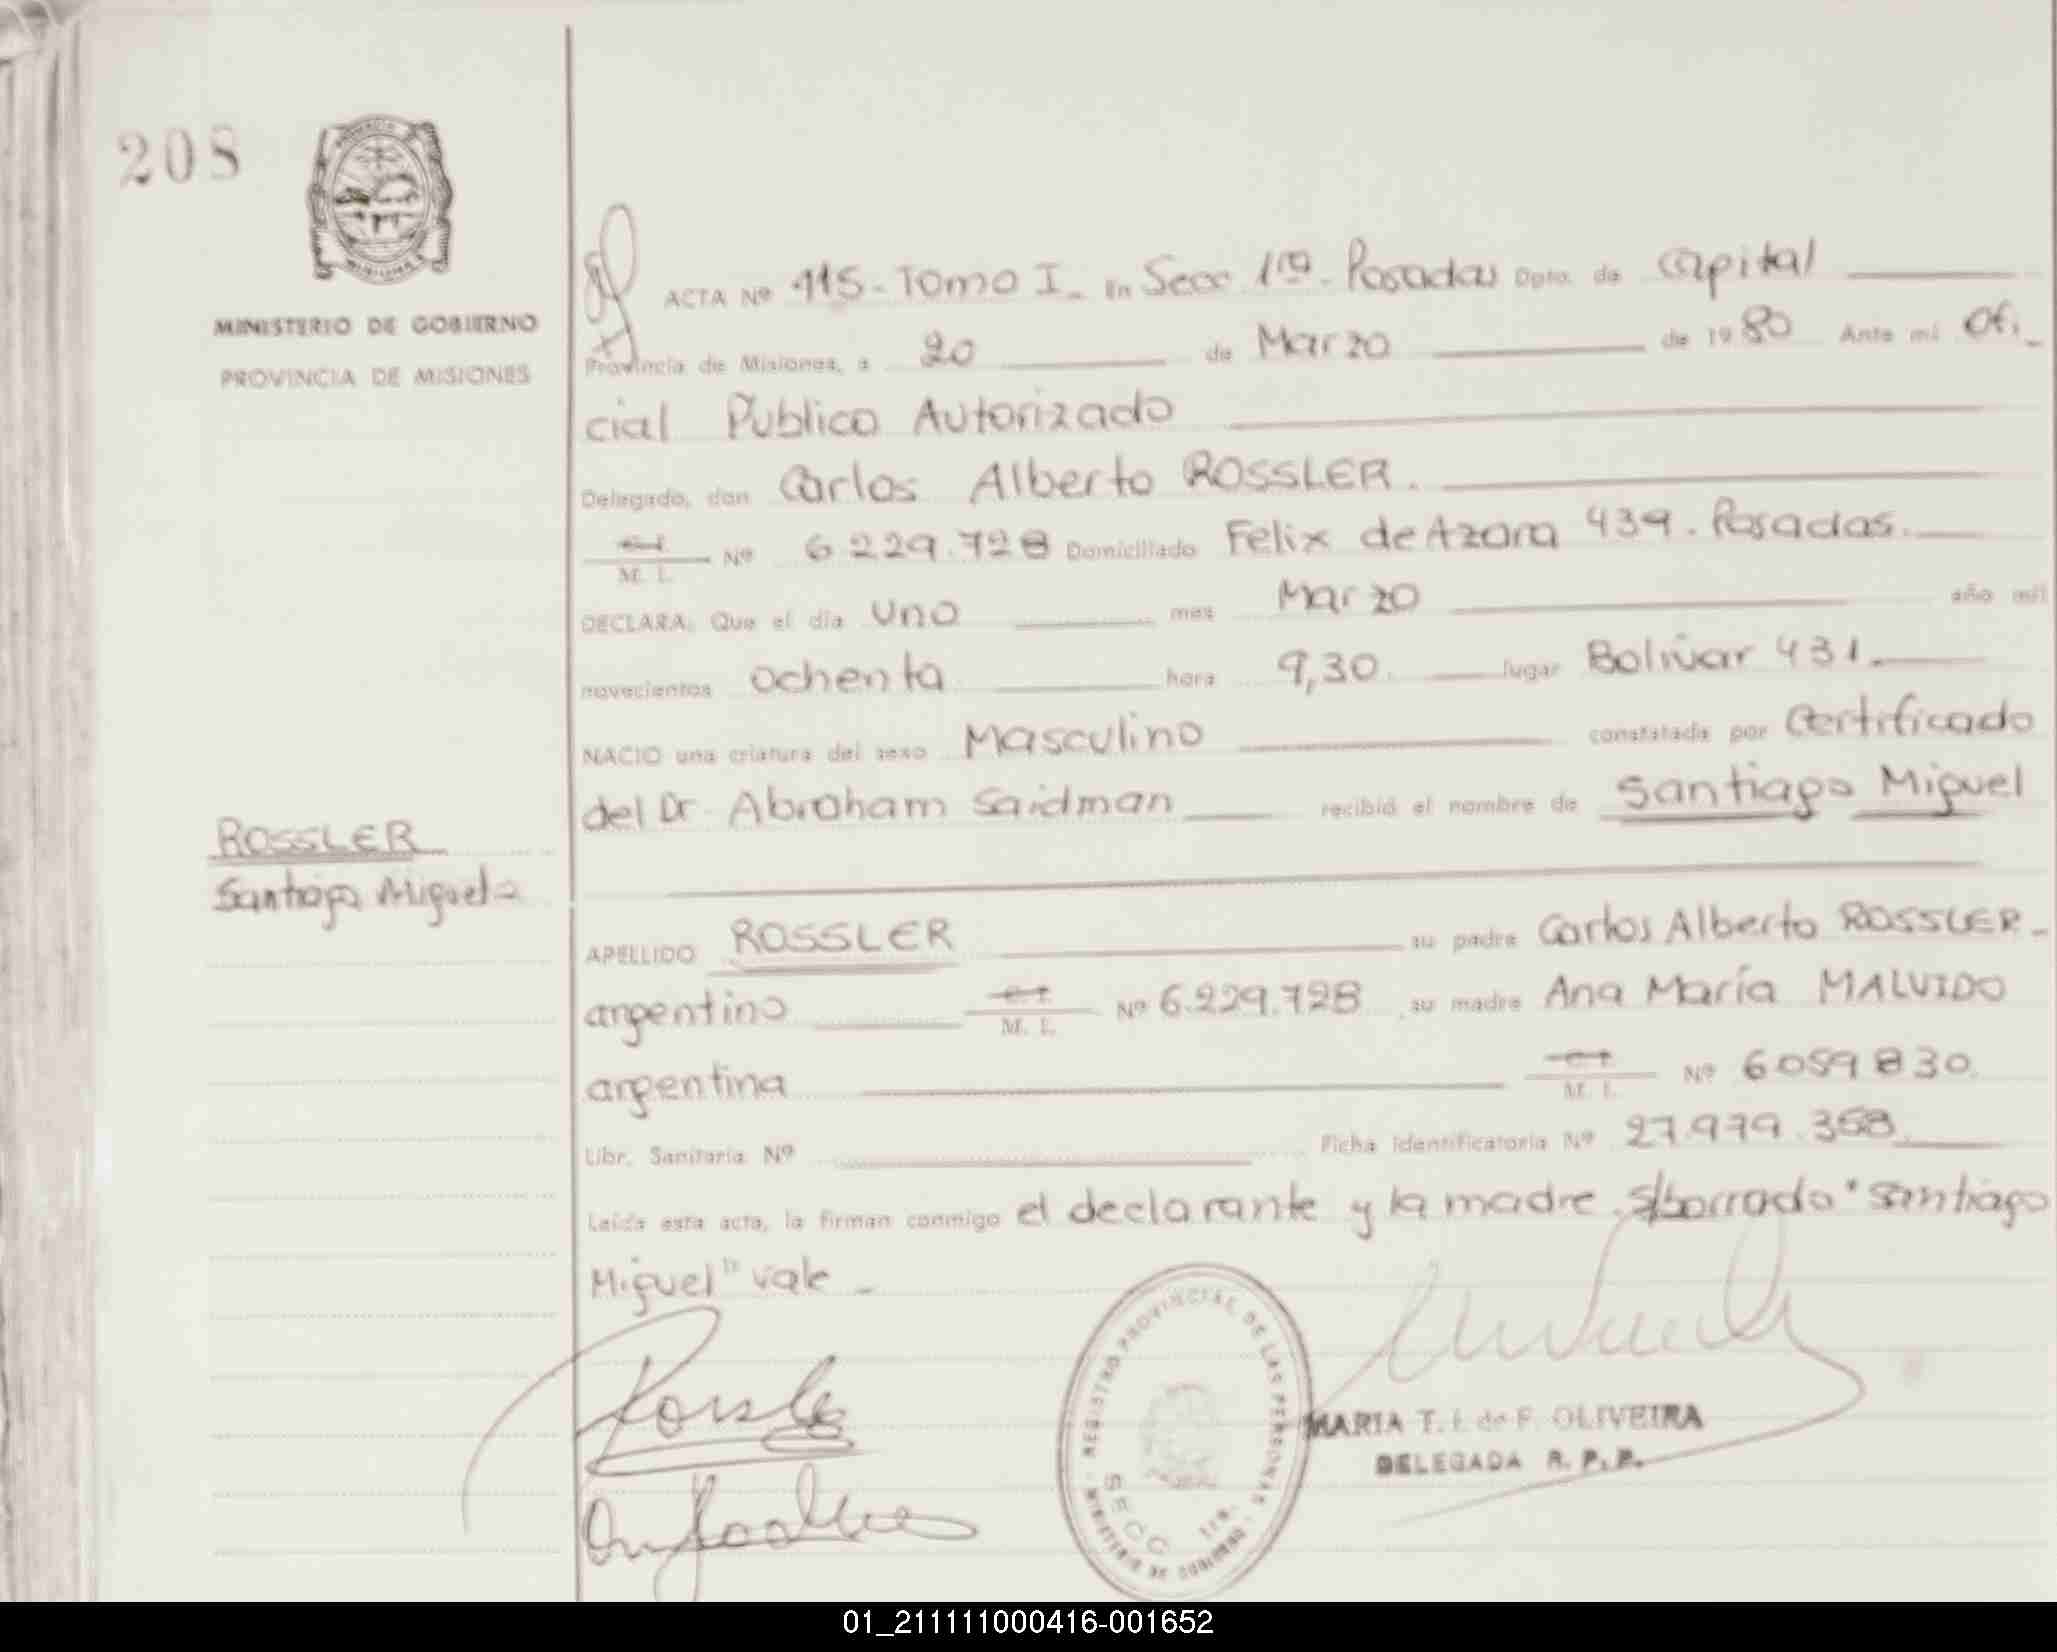 208
MINISTERIO DE GOBIERNO
PROVINCIA DE MISIONES
ACTA Nº 415 - Tomo I - En Secc 1ra - Posadas Dpto. de Capital
Provincia de Misiones, a 20 de Marzo de 1980 Ante mi Ofi_
cial Publico Autorizado
Delegado, don Carlos Alberto ROSSLER.
M. I. Nº 6.229.728 Domiciliado Felix de Azara 439. Posadas.
DECLARA: Que el día uno mes Marzo año mil
novecientos ochenta hora 9,30. lugar Bolivar 431.
NACIO una criatura del sexo Masculino constatada por Certificado
del Dr. Abraham Saidman recibió el nombre de Santiago Miguel
ROSSLER
Santiago Miguel
APELLIDO ROSSLER su padre Carlos Alberto ROSSLER -
argentino C. I. M. I. Nº 6.229.728 , su madre Ana María MALVIDO
argentina C. I. M. I. Nº 6059830
Libr. Sanitaria Nº Ficha identificatoria Nº 27.979.358.
Leída esta acta, la firman conmigo el declarante y la madre. S/borrado "Santiago
Miguel" vale -
REGISTRO PROVINCIAL DE LAS PERSONAS
MINISTERIO DE GOBIERNO
SECC 1ra.
MARIA T. I. de F. OLIVEIRA
DELEGADA R. P. P.
01_211111000416-001652